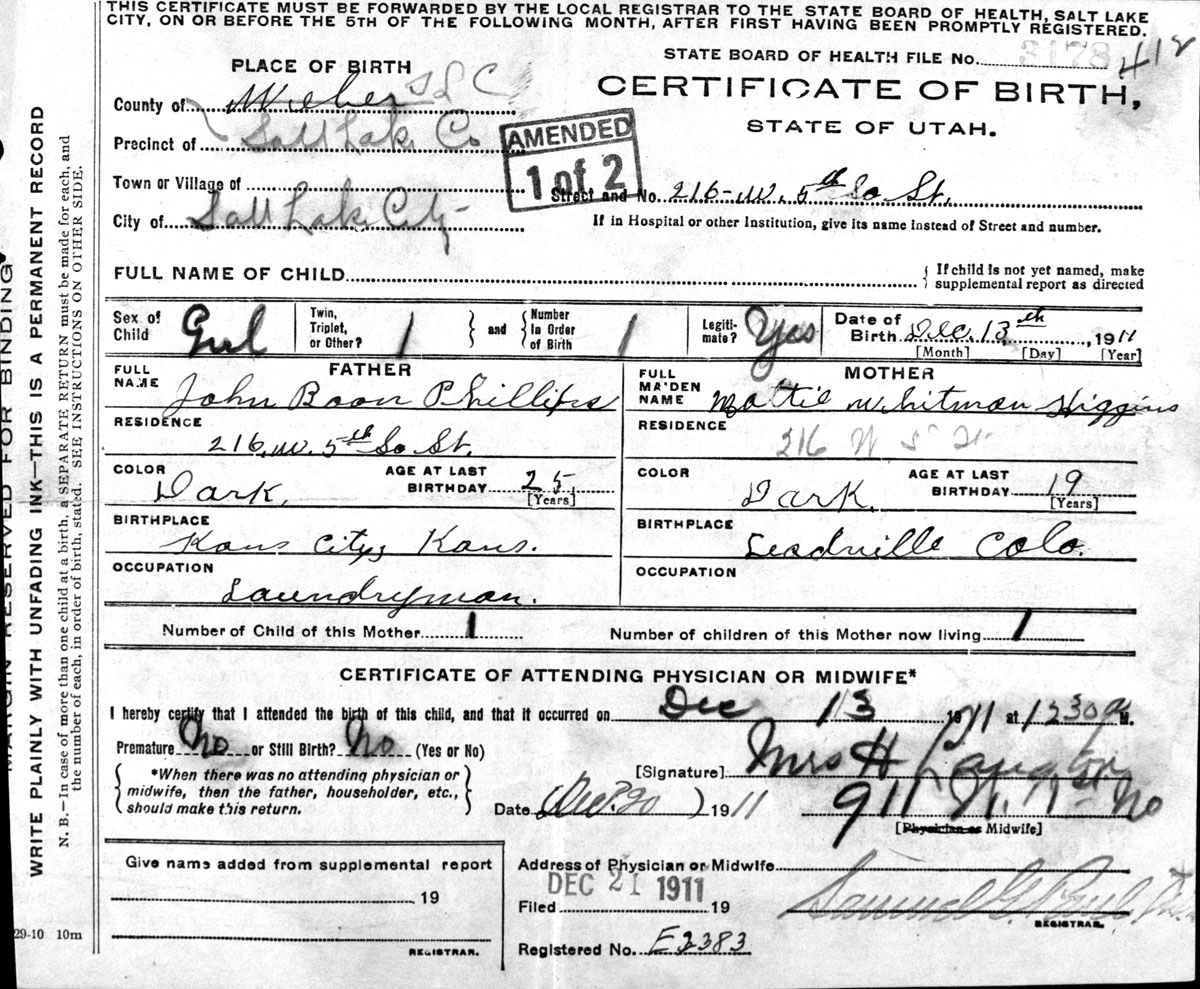 THIS CERTIFICATE MUST BE FORWARDED BY THE LOCAL REGISTRAR TO THE STATE BOARD OF HEALTH, SALT LAKE
CITY, ON OR BEFORE THE 5TH OF THE FOLLOWING MONTH, AFTER FIRST HAVING BEEN PROMPTLY REGISTERED.
STATE BOARD OF HEALTH FILE No. 3178 412
PLACE OF BIRTH
CERTIFICATE OF BIRTH,
STATE OF UTAH.
County of Weber S L C
Precinct of Salt Lake Co
AMENDED
1 of 2
Town or Village of
Street and No. 216-W. 5th So St.
City of Salt Lake City
If in Hospital or other Institution, give its name instead of Street and number.
FULL NAME OF CHILD
{ If child is not yet named, make
supplemental report as directed
Sex of Child Girl
Twin, Triplet, or Other? 1
and
Number In Order of Birth 1
Legiti-mate? Yes
Date of Birth Dec. 13th, 1911
[Month] [Day] [Year]
FATHER
FULL NAME John Boon Phillips
MOTHER
FULL MAIDEN NAME Mattie Whitman Higgins
RESIDENCE 216. W. 5th So St.
RESIDENCE 216 W
COLOR Dark. AGE AT LAST BIRTHDAY 25. [Years]
COLOR Dark. AGE AT LAST BIRTHDAY 19 [Years]
BIRTHPLACE Kans City, Kans.
BIRTHPLACE Leadville Colo.
OCCUPATION Laundryman.
OCCUPATION
Number of Child of this Mother 1
Number of children of this Mother now living 1
CERTIFICATE OF ATTENDING PHYSICIAN OR MIDWIFE*
I hereby certify that I attended the birth of this child, and that it occurred on Dec 13 1911 at 1230 a M.
Premature No or Still Birth? No (Yes or No)
{ *When there was no attending physician or
midwife, then the father, householder, etc.,
should make this return. }
[Signature] Mrs H
Date (Dec. 20 ) 1911
911
[Physician or Midwife]
Give name added from supplemental report
19
REGISTRAR.
Address of Physician or Midwife
DEC 21 1911
Filed 19
Samuel G. Paul
REGISTRAR.
Registered No. E2383
29-10 10m
MARGIN RESERVED FOR BINDING
WRITE PLAINLY WITH UNFADING INK—THIS IS A PERMANENT RECORD
N. B.—In case of more than one child at a birth, a SEPARATE RETURN must be made for each, and
the number of each, in order of birth, stated. SEE INSTRUCTIONS ON OTHER SIDE.